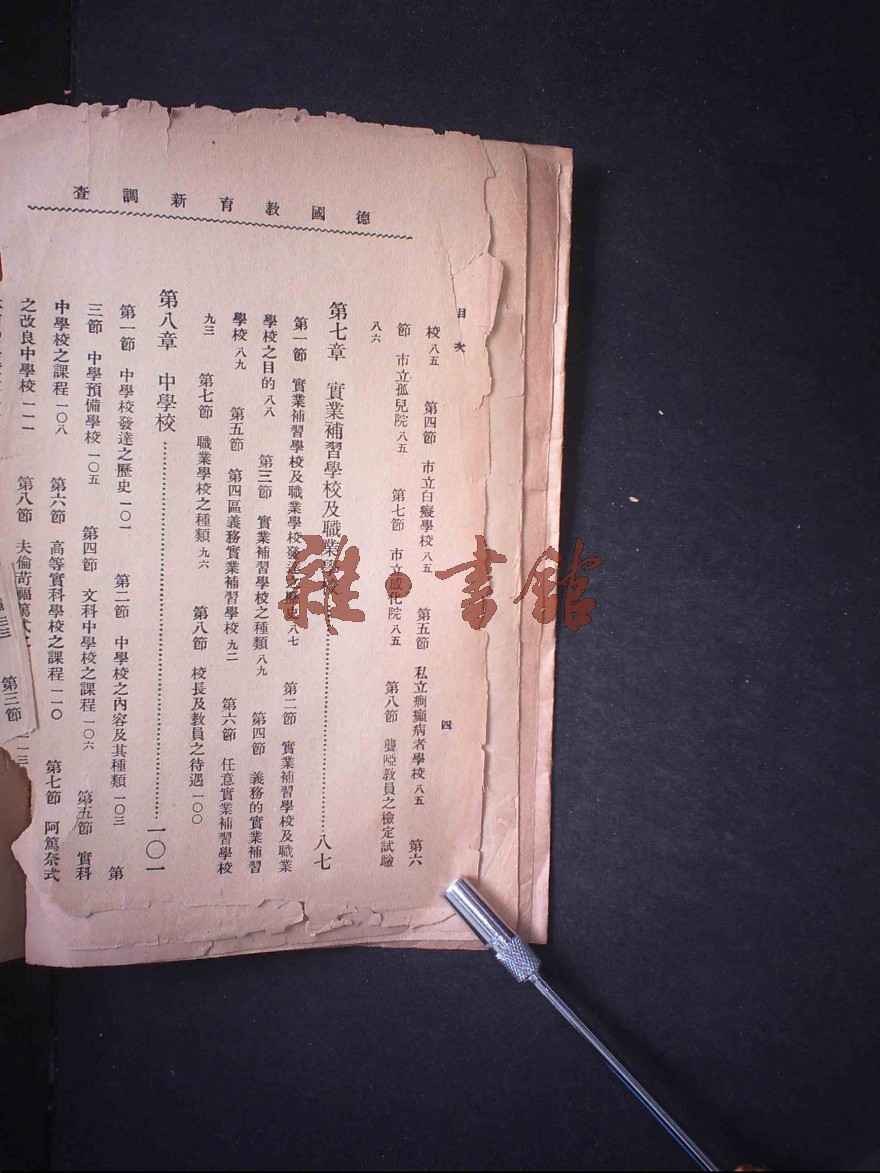 德國教育新調查
目次
四
校 八五 第四節 市立白癡學校 八五 第五節 私立痌癲病者學校 八五 第六
節 市立孤兒院 八五 第七節 市立感化院 八五 第八節 聾啞教員之檢定試驗
八六
第七章 實業補習學校及職業學校 八七
第一節 實業補習學校及職業學校發達之歷史 八七 第二節 實業補習學校及職業
學校之目的 八八 第三節 實業補習學校之種類 八九 第四節 義務的實業補習
學校 八九 第五節 第四區義務實業補習學校 九二 第六節 任意實業補習學校
九三 第七節 職業學校之種類 九六 第八節 校長及教員之待遇 一〇〇
第八章 中學校 一〇一
第一節 中學校發達之歷史 一〇一 第二節 中學校之內容及其種類 一〇三 第
三節 中學預備學校 一〇五 第四節 文科中學校之課程 一〇六 第五節 實科
中學校之課程 一〇八 第六節 高等實科學校之課程 一一〇 第七節 阿篤奈式
之改良中學校 一一一 第八節 夫倫苛福第式
第三節
雜·書館